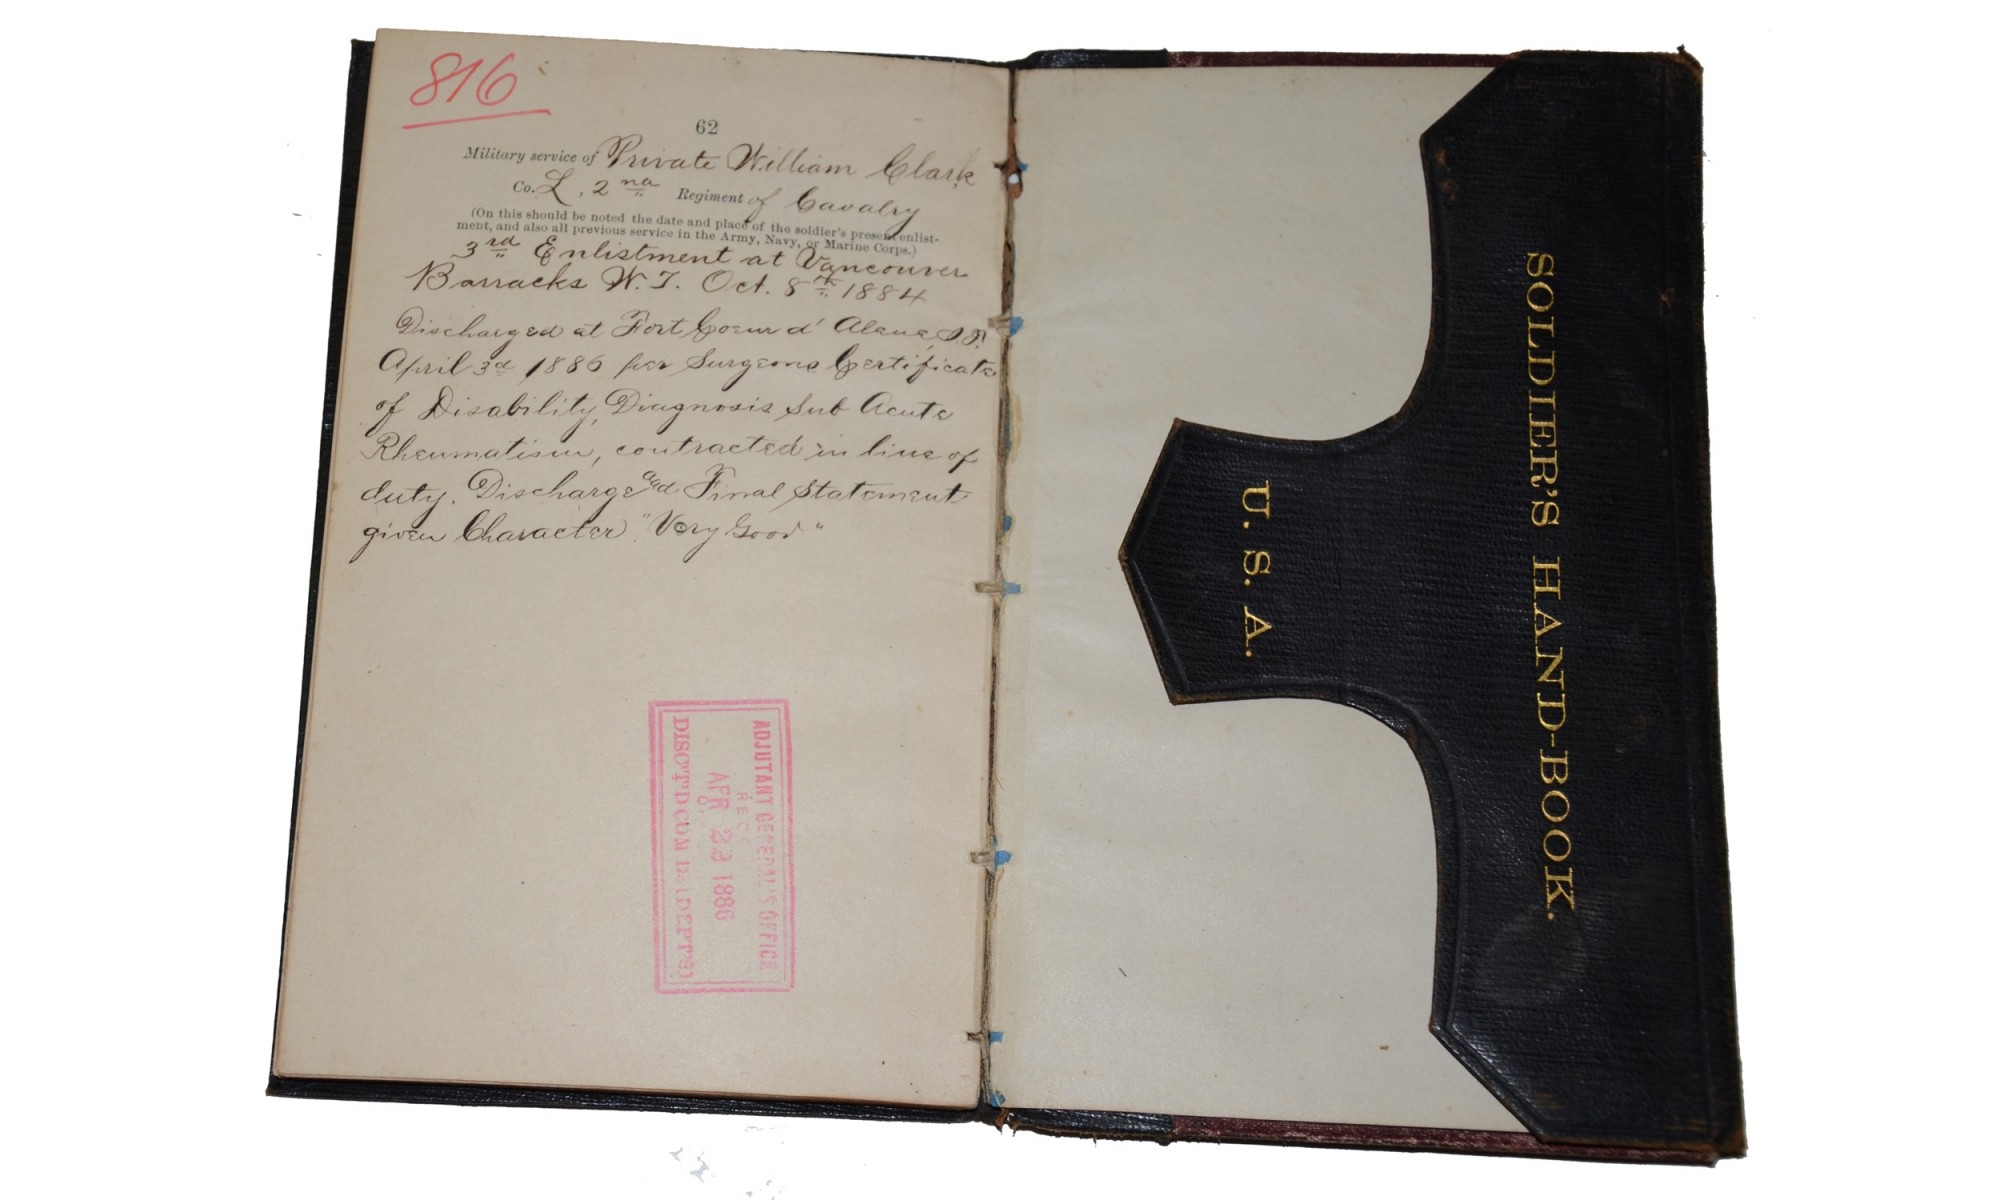 816
62
Military service of Private William Clark
Co. L, 2nd Regiment of Cavalry
(On this should be noted the date and place of the soldier's present enlist-
ment, and also all previous service in the Army, Navy, or Marine Corps.)
3rd Enlistment at Vancouver
Barracks W. T. Oct. 8th 1884
Discharged at Fort Coeur d' Alene, I.T.
April 3d 1886 per Surgeons Certificate
of Disability, Diagnosis Sub Acute
Rheumatism, contracted in line of
duty. Discharge and Final Statement
given Character "Very Good"
ADJUTANT GENERAL'S OFFICE
REC'D
APR 23 1886
DISCT'D COM
DEPT'S)
U. S. A.
SOLDIER'S HAND-BOOK.